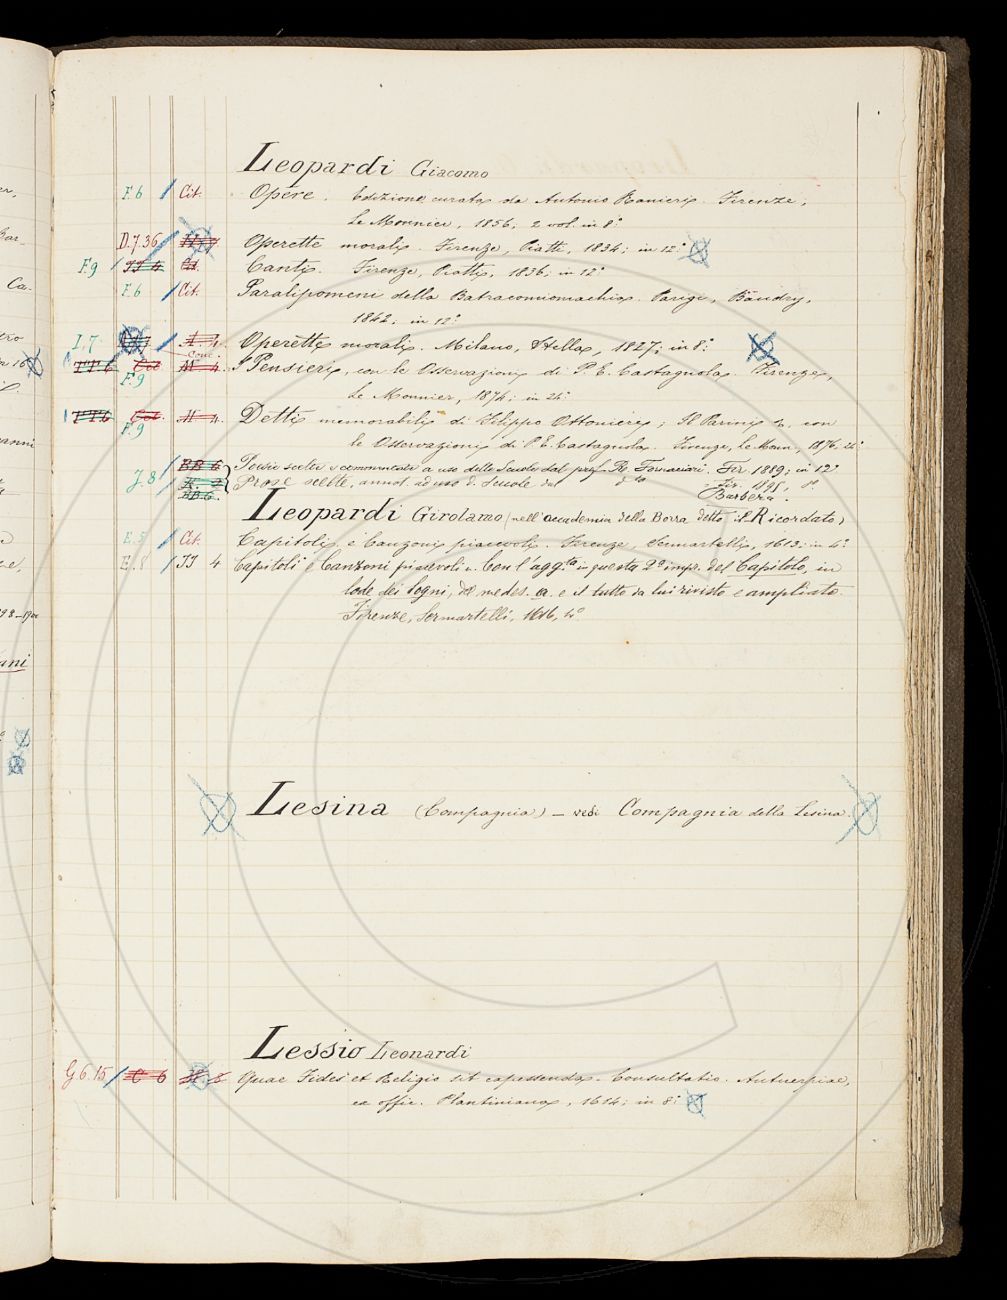 Leopardi Giacomo
F.6 / Cit. Opere. Edizione curata da Antonio Ranieri. Firenze,
Le Monnier, 1856, 2 vol. in 8°
D.7.36 Operette morali. Firenze, Piatti, 1834; in 12°
F.9 / II 4 Cit. Canti. Firenze, Piatti, 1836; in 12°
F.6 / Cit. Paralipomeni della Batracomiomachia. Parigi, Baudry,
1842; in 12°
I.7 / Operette morali. Milano, Stella, 1827; in 8°
Cit. I Pensieri, con le Osservazioni di P. E. Castagnola. Firenze,
F.9
Le Monnier, 1874; in 24°
Cit. Detti memorabili di Filippo Ottonieri; Il Parini &, con
F.9
le Osservazioni di P. E. Castagnola. Firenze, Le Monn., 1876, 24°
BB 6 Poesie scelte e commentate a uso delle Scuole dal prof. R. Fornaciari. Fir. 1889; in 12°
J.8 / Prose scelte, annot. ad uso d. Scuole da d.to Fir. 1895, 8°
BB 6. Barbèra.
Leopardi Girolamo (nell'accademia della Borra detto il Ricordato)
E.5 / Cit. Capitoli e Canzoni piacevoli. Firenze, Sermartelli, 1613; in 4°
E.8 / II 4 Capitoli e Canzoni piacevoli &. Con l'agg.ta in questa 2a imp. del Capitolo, in
lode dei Sogni, del medes. a. e il tutto da lui rivisto e ampliato.
Firenze, Sermartelli, 1616, 4°
Lesina (Compagnia) — vedi Compagnia della Lesina.
Lessio Leonardi
G.6.15 / C 6 Quae Fides et Religio sit capessenda. Consultatio. Antuerpiae,
ex offic. Plantiniana, 1614; in 8°